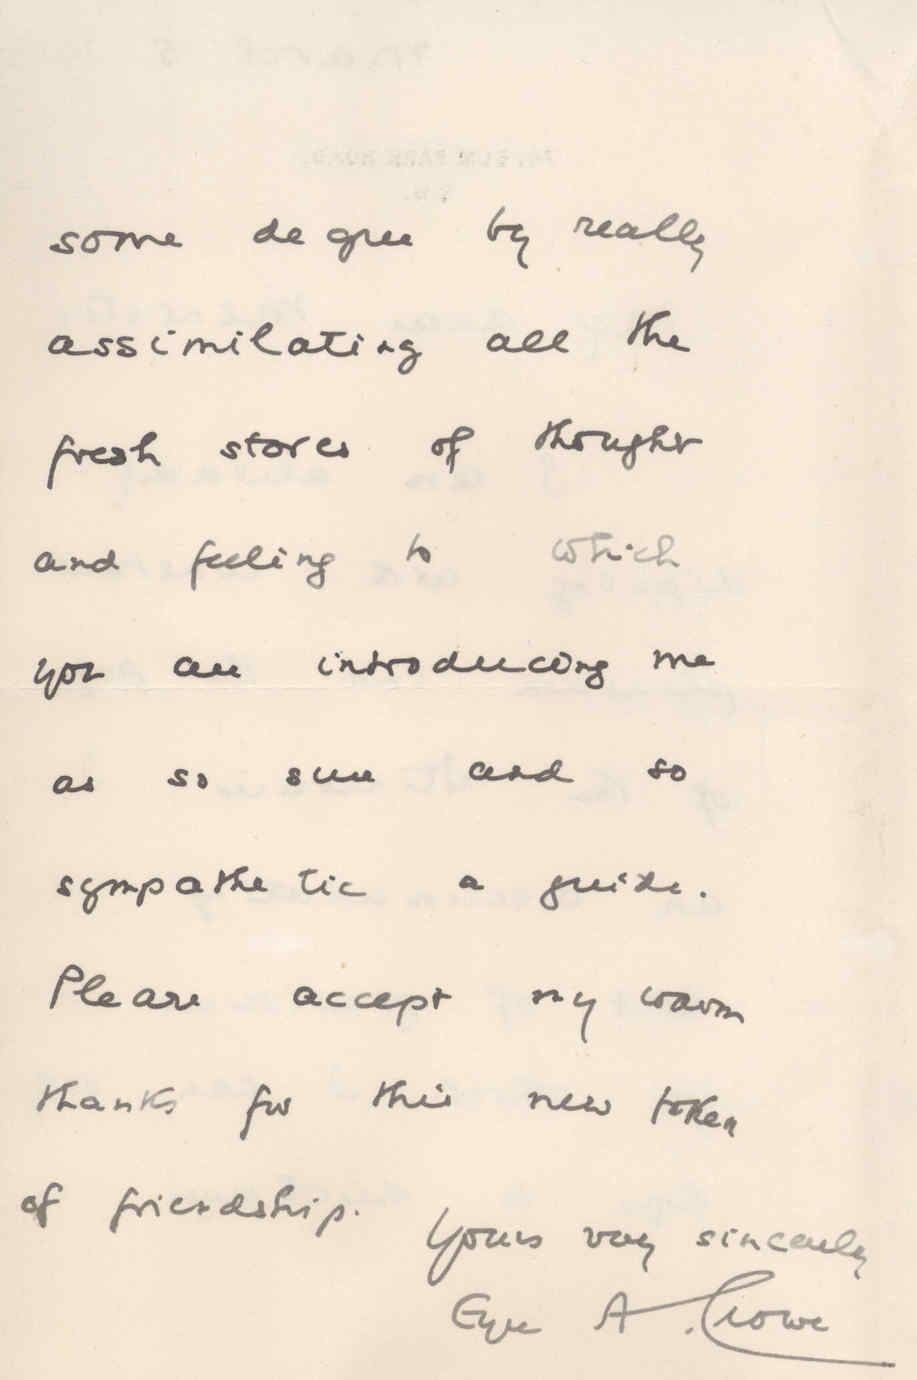 some degree by really
assimilating all the
fresh stores of thought
and feeling to which
you are introducing me
as so sure and so
sympathetic a guide.
Please accept my warm
thanks for this new token
of friendship.
Yours very sincerely
Eyre A. Crowe